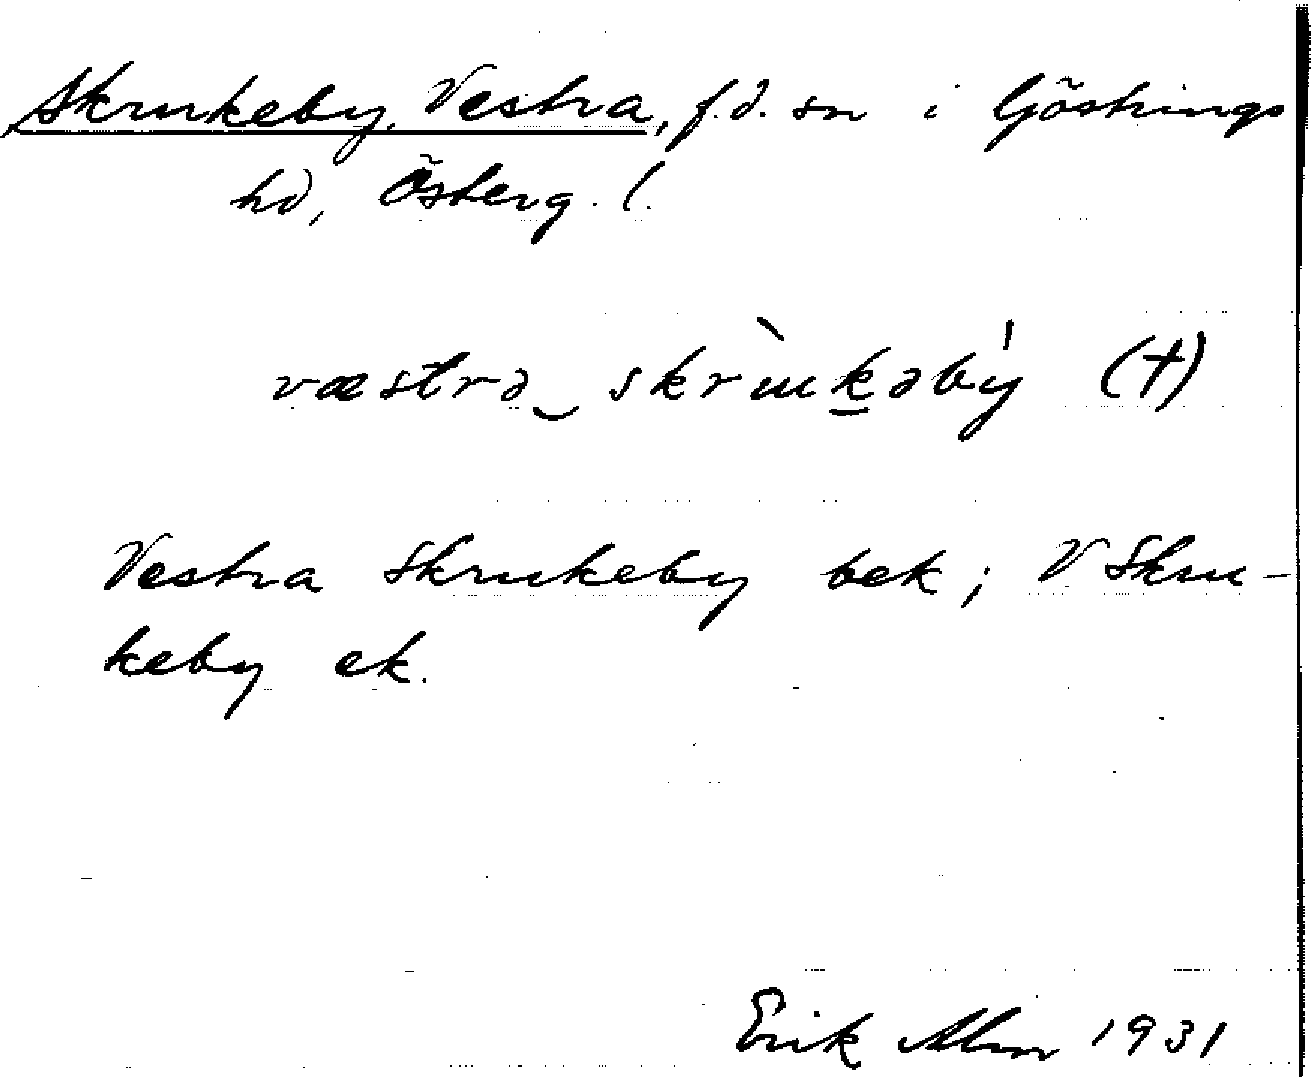 Skrukeby, Vestra, f.d. sn i Göstrings
hd, Österg. l.
væstrə‿skrùk̲əbý (†)
Vestra Skrukeby bek; V Skru-
keby ek.
Erik Alm 1931